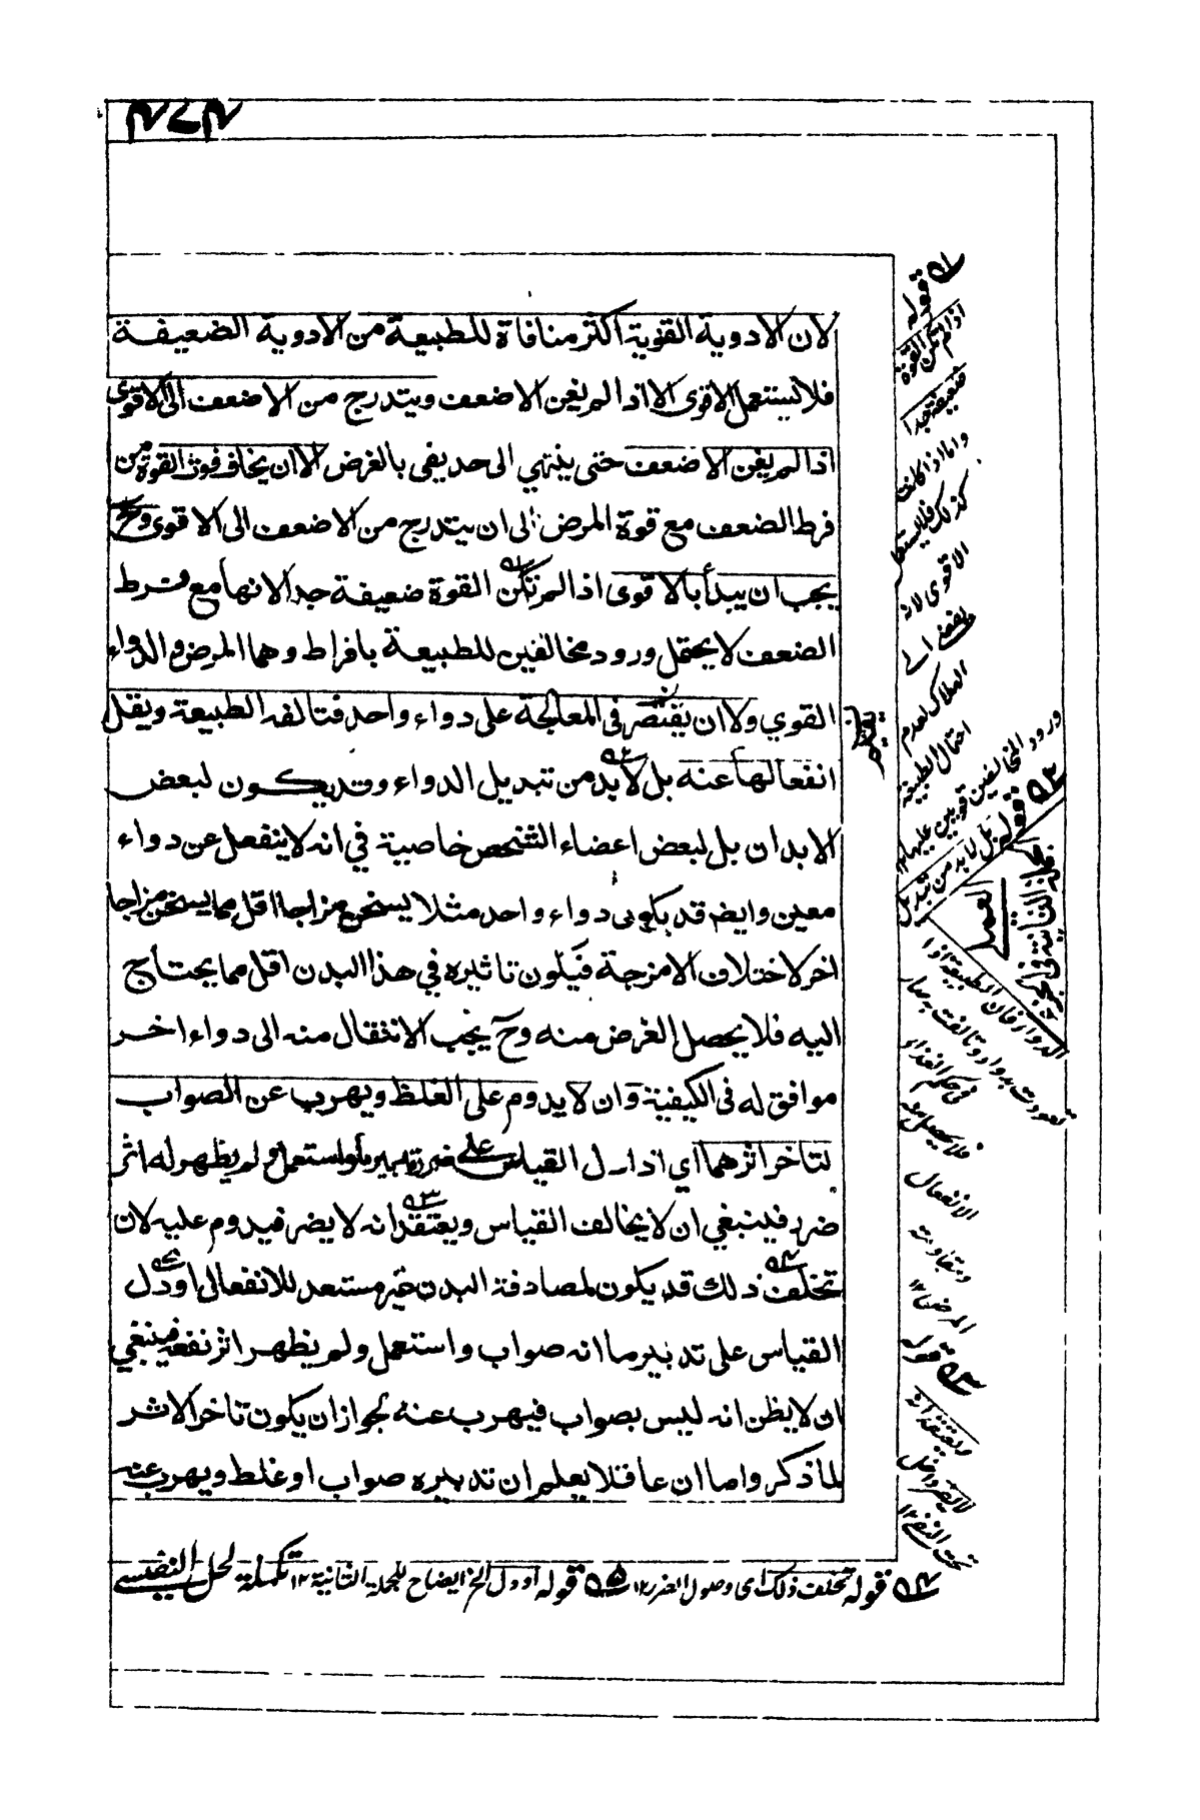 ٤٧٤
لان الادوية القوية اكثر منافاة للطبيعة من الادوية الضعيفة
فلا يستعمل الاقوى الا اذا لم يغن الاضعف ويتدرج من الاضعف الى الاقوى
اذا لم يغن الاضعف حتى ينتهي الى حد يفى بالغرض الا ان يخاف فوت القوة من
فرط الضعف مع قوة المرض الى ان يتدرج من الاضعف الى الاقوى وح
يجب ان يبدأ بالاقوى اذا لم تكن القوة ضعيفة جدا لانها مع فرط
الضعف لا يحتمل ورود مخالفين للطبيعة بافراط وهما المرض والدواء
القوي ولا ان يقتصر فى المعالجة على دواء واحد فتالفه الطبيعة ويقل
انفعالها عنه بل لابد من تبديل الدواء وقد يكون لبعض
الابدان بل لبعض اعضاء الشخص خاصية في انه لا ينفعل عن دواء
معين وايضم قد يكون دواء واحد مثلا يسخن مزاجا اقل مما يسخن مزاجا
اخر لاختلاف الامزجة فيكون تاثيره في هذا البدن اقل مما يحتاج
اليه فلا يحصل الغرض منه وح يجب الانتقال منه الى دواء اخر
موافق له فى الكيفية وان لا يدوم على الغلط ويهرب عن الصواب
لتاخر اثرهما اي اذا دل القياس على ضرر تدبير ما واستعمل ولم يظهر له اثر
ضرر فينبغي ان لا يخالف القياس ويعتقد انه لا يضر فيدوم عليه لان
تخلف ذلك قد يكون لمصادفة البدن غير مستعد للانفعال او دل
القياس على تدبير ما انه صواب واستعمل ولم يظهر اثر نفعه فينبغي
ان لا يظن انه ليس بصواب فيهرب عنه لجواز ان يكون تاخر الاثر
لما ذكر واما ان عاقلا يعلم ان تدبيره صواب او غلط ويهرب عنه
قوله
اذا لم تكن القوة
ضعيفة جدا
واما اذا كانت
كذلك فلا يستعمل
الاقوى لانه
يفضى الى
الهلاك لعدم
احتمال الطبيعة
ورود المخالفين قويين عليها ١٢
قوله بل لابد من تبديل
الدواء فان الطبيعة اذا
تعودت بدواء وتالفت به صار
فى حكم الغذاء
فلا يحصل منه
الانفعال
ومقاومة
المرض ١٢
قوله
ويعتقد انه
لا يضر داخل
تحت النفى ١٢
الجملة الثانية فى الجزء
العملى
قوله تخلف ذلك اى وصول الضرر ١٢ قوله او دل الخ ايضاح للجملة الثانية ١٢ تكملة لحل النفيسى